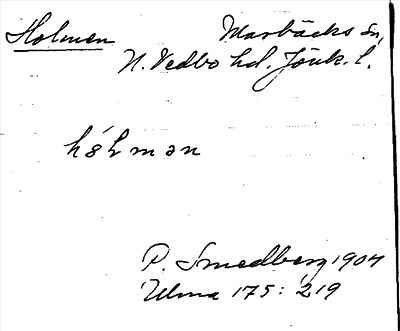 Holmen Marbäcks sn,
N. Vedbo hd. Jönk. l.
hólmən
P. Smedberg 1904
Ulma 175: 219